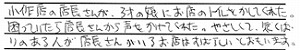 小作店の店長さんが、3才の娘にお店のトイレをかしてくれた。
困っていたら店長さんから声をかけてくれた。やさしくて、思くば
りのある人が店長さんがいるお店はすばらしいとおもいます。